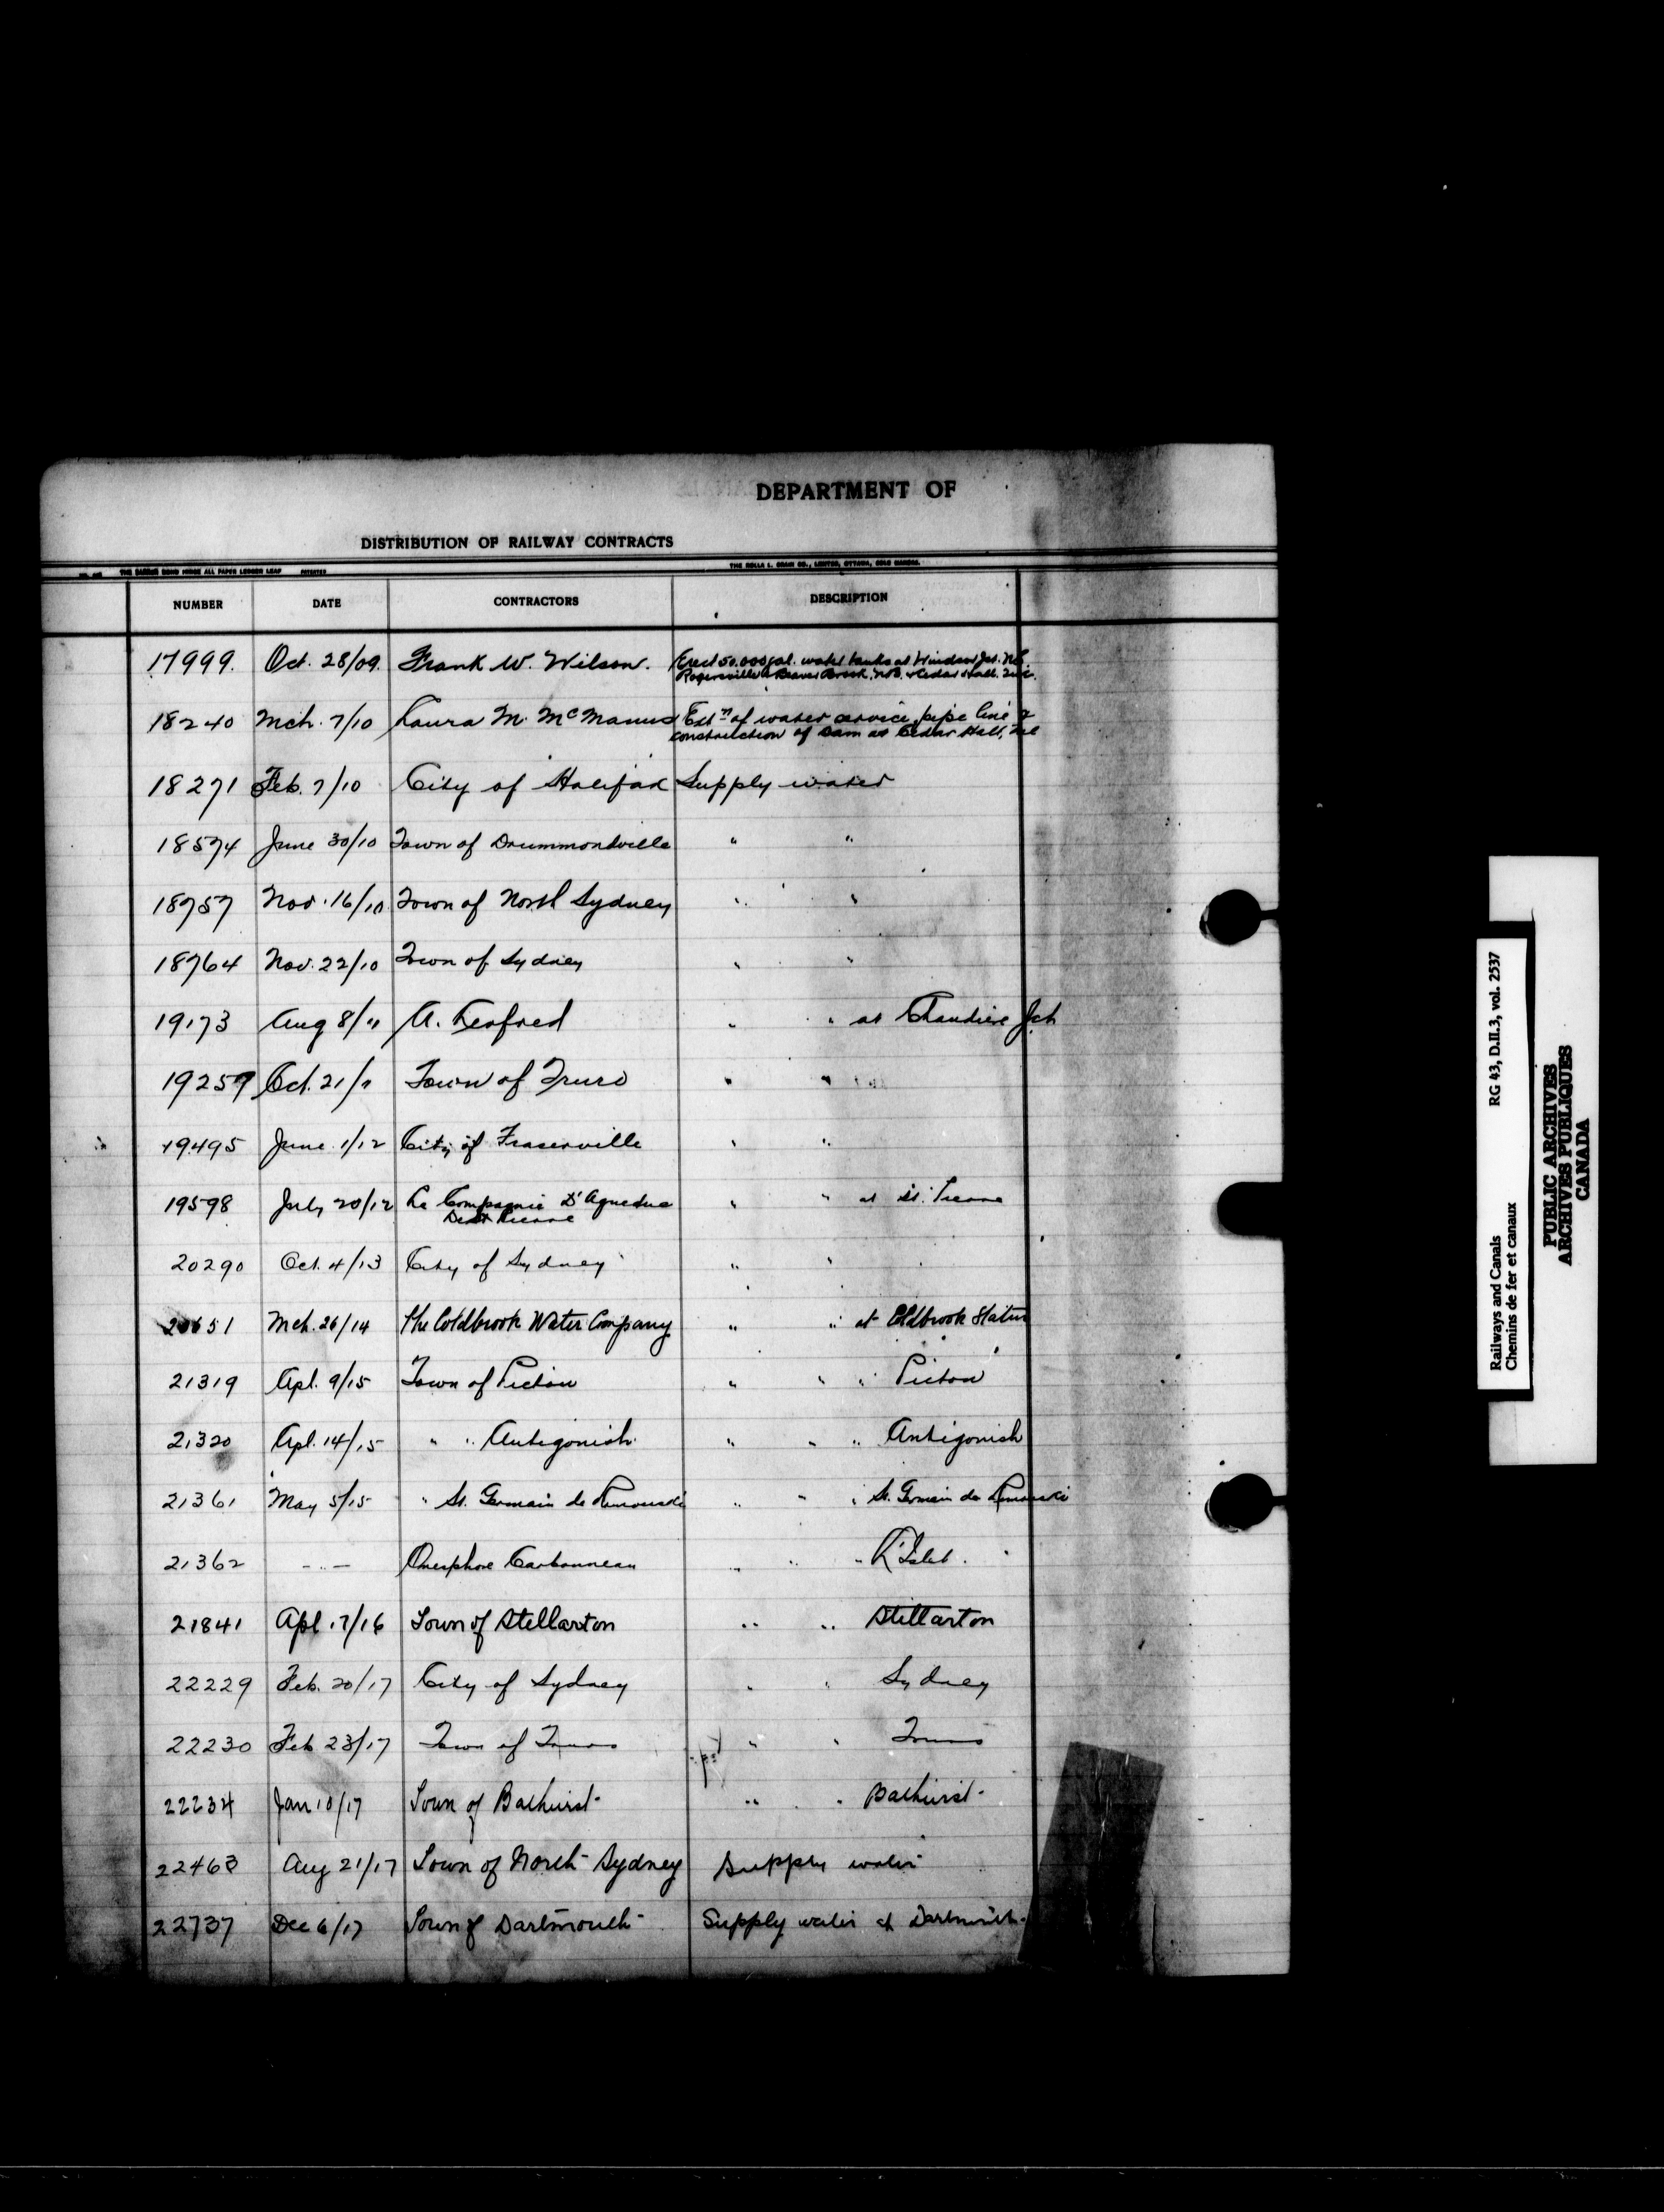 DEPARTMENT OF
DISTRIBUTION OF RAILWAY CONTRACTS
NUMBER DATE CONTRACTORS DESCRIPTION
17999. Oct. 28/09. Frank W. Wilson. Erect 50.000 gal. water tanks at Windsor Jct. N.S.
Rogersville & Beaver Brook, N.B. & Cedar Hall. Que.
18240 Mch. 7/10 Laura M. McManus Extn of water service, pipe line &
construction of Dam at Cedar Hall, Que
18271 Feb. 7/10 City of Halifax Supply water
18574 June 30/10 Town of Drummondville " "
18757 Nov. 16/10 Town of North Sydney " "
18764 Nov. 22/10 Town of Sydney " "
19173 Aug 8/11 A. " " at Chaudiere Jct
19259 Oct. 21/11 Town of Truro " "
19495 June 1/12 City of Fraserville " "
19598 July 20/12 La Compagnie D'Aqueduc " " at St. Pierre
De St Pierre
20290 Oct. 4/13 City of Sydney " "
20651 Mch. 26/14 The Coldbrook Water Company " " at Coldbrook Station
21319 Apl. 9/15 Town of Pictou " " " Pictou
21320 Apl. 14/15 " " Antigonish " " " Antigonish
21361 May 5/15 " St. Germain de Rimouski " " " St. Germain de Rimouski
21362 - " - Onesphore Carbonneau " " " L'Islet.
21841 Apl 17/16 Town of Stellarton " " Stellarton
22229 Feb. 20/17 City of Sydney " " Sydney
22230 Feb 23/17 Town of Truro " " Truro
22234 Jan 10/17 Town of Bathurst " " Bathurst
22463 Aug 21/17 Town of North Sydney Supply water
22737 Dec 6/17 Town of Dartmouth Supply water at Dartmouth.
Railways and Canals RG 43, D.II.3, vol. 2537
Chemins de fer et canaux
PUBLIC ARCHIVES
ARCHIVES PUBLIQUES
CANADA